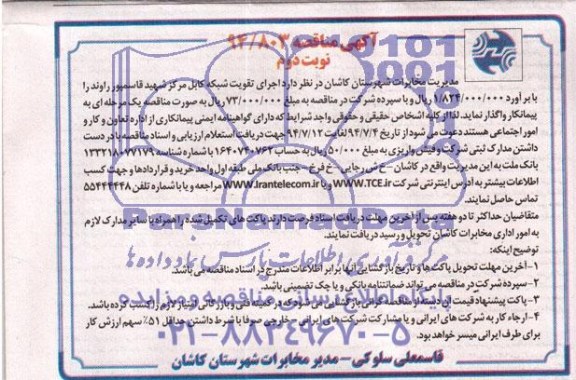 آگهی مناقصه ۹۴/۸۰۳
نوبت دوم
مدیریت مخابرات شهرستان کاشان در نظر دارد اجرای تقویت شبکه کابل مرکز شهید قاسمپور راوند را
با برآورد ۱/۸۲۴/۰۰۰/۰۰۰ ریال و با سپرده شرکت در مناقصه به مبلغ ۷۳/۰۰۰/۰۰۰ ریال به صورت مناقصه یک مرحله ای به
پیمانکار واگذار نماید. لذا از کلیه اشخاص حقیقی و حقوقی واجد شرایط که دارای گواهینامه ایمنی پیمانکاری از اداره تعاون و کار و
امور اجتماعی هستند دعوت می شود از تاریخ ۹۴/۷/۴ لغایت ۹۴/۷/۱۲ جهت دریافت استعلام ارزیابی و اسناد مناقصه با در دست
داشتن مدارک ثبتی شرکت و فیش واریزی به مبلغ ۵۰/۰۰۰ ریال به حساب ۱۶۴۰۷۴۰۷۶۲ با شماره شناسه ۱۳۳۲۱۸۰۷۷۱۷۹
بانک ملت به این مدیریت واقع در کاشان - خ شهید رجایی - خ فرخ - جنب بانک ملی طبقه اول واحد خرید و قراردادها و جهت کسب
اطلاعات بیشتر به آدرس اینترنتی شرکت WWW.TCE.ir و یا WWW.Irantelecom.ir مراجعه و یا با شماره تلفن ۵۵۴۴۴۴۴۸
تماس حاصل نمایند.
متقاضیان حداکثر تا دو هفته پس از آخرین مهلت دریافت اسناد فرصت دارند پاکت های تکمیل شده را همراه با سایر مدارک لازم
به امور اداری مخابرات کاشان تحویل و رسید دریافت نمایند.
توضیح اینکه:
۱- آخرین مهلت تحویل پاکت ها و تاریخ بازگشایی آنها برابر اطلاعات مندرج در اسناد مناقصه می باشد.
۲- سپرده شرکت در مناقصه می تواند ضمانتنامه بانکی و یا چک تضمینی باشد.
۳- پاکت پیشنهاد قیمت آن دسته از مناقصه گرانی بازگشایی می شود که در کمیته فنی و بازرگانی امتیاز لازم را کسب کرده باشد.
۴- ارجاء کار به شرکت های ایرانی و یا مشارکت شرکت های ایرانی - خارجی صرفا با شرط داشتن حداقل ۵۱٪ سهم ارزش کار
برای طرف ایرانی میسر خواهد بود.
قاسمعلی سلوکی - مدیر مخابرات شهرستان کاشان
مرکز فرآوری اطلاعات پارس نماد داده ها
۰۲۱-۸۸۳۴۹۶۷۰-۵